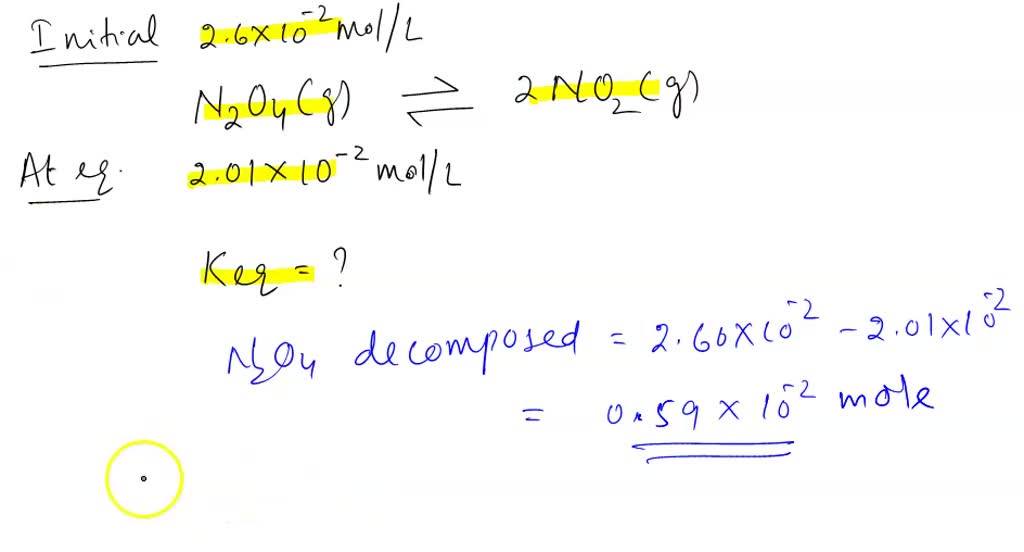 Initial 2.6×10⁻² mol/L
N₂O₄(g) ⇌ 2NO₂(g)
At eq. 2.01×10⁻² mol/L
Keq = ?
N₂O₄ decomposed = 2.60×10⁻² - 2.01×10⁻²
= 0.59 × 10⁻² mole